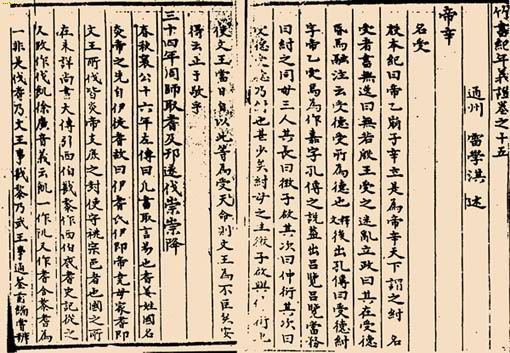 竹書紀年義證卷之十五
通州 雷學淇 述
帝辛
名受
殷本紀曰帝乙崩子辛立是為帝辛天下謂之紂 名
受者書無逸曰無若殷王受之迷亂立政曰其在受德
昏馬融注云受德受所為德也 釋文 後出孔傳曰受德紂
字帝乙愛焉為作善字孔傳之說益出呂覽呂覽當務
曰紂之同母三人其長曰微子啟其次曰仲衍其次曰
受德受德乃紂也甚少矣紂母之生微子啟與仲衍也
使文王當日自以此等為受天命則文王為不臣矣安
得云止于敬乎
三十四年周師取耆及邘遂伐崇崇降
春秋襄公十六年左傳曰凡書取言易也耆姜姓國名
炎帝之先自伊徙耆故曰伊耆氏伊即帝堯母家耆即
文王所伐皆炎帝支庶之封使守祧宗邑者也國之所
在未詳尚書大傳引西伯戡黎作西伯戡耆史記從之
又改作伐飢徐廣音義云飢一作又作耆黎耆為
一非是伐耆乃文王事戡黎乃武王事通鑒前編嘗辨